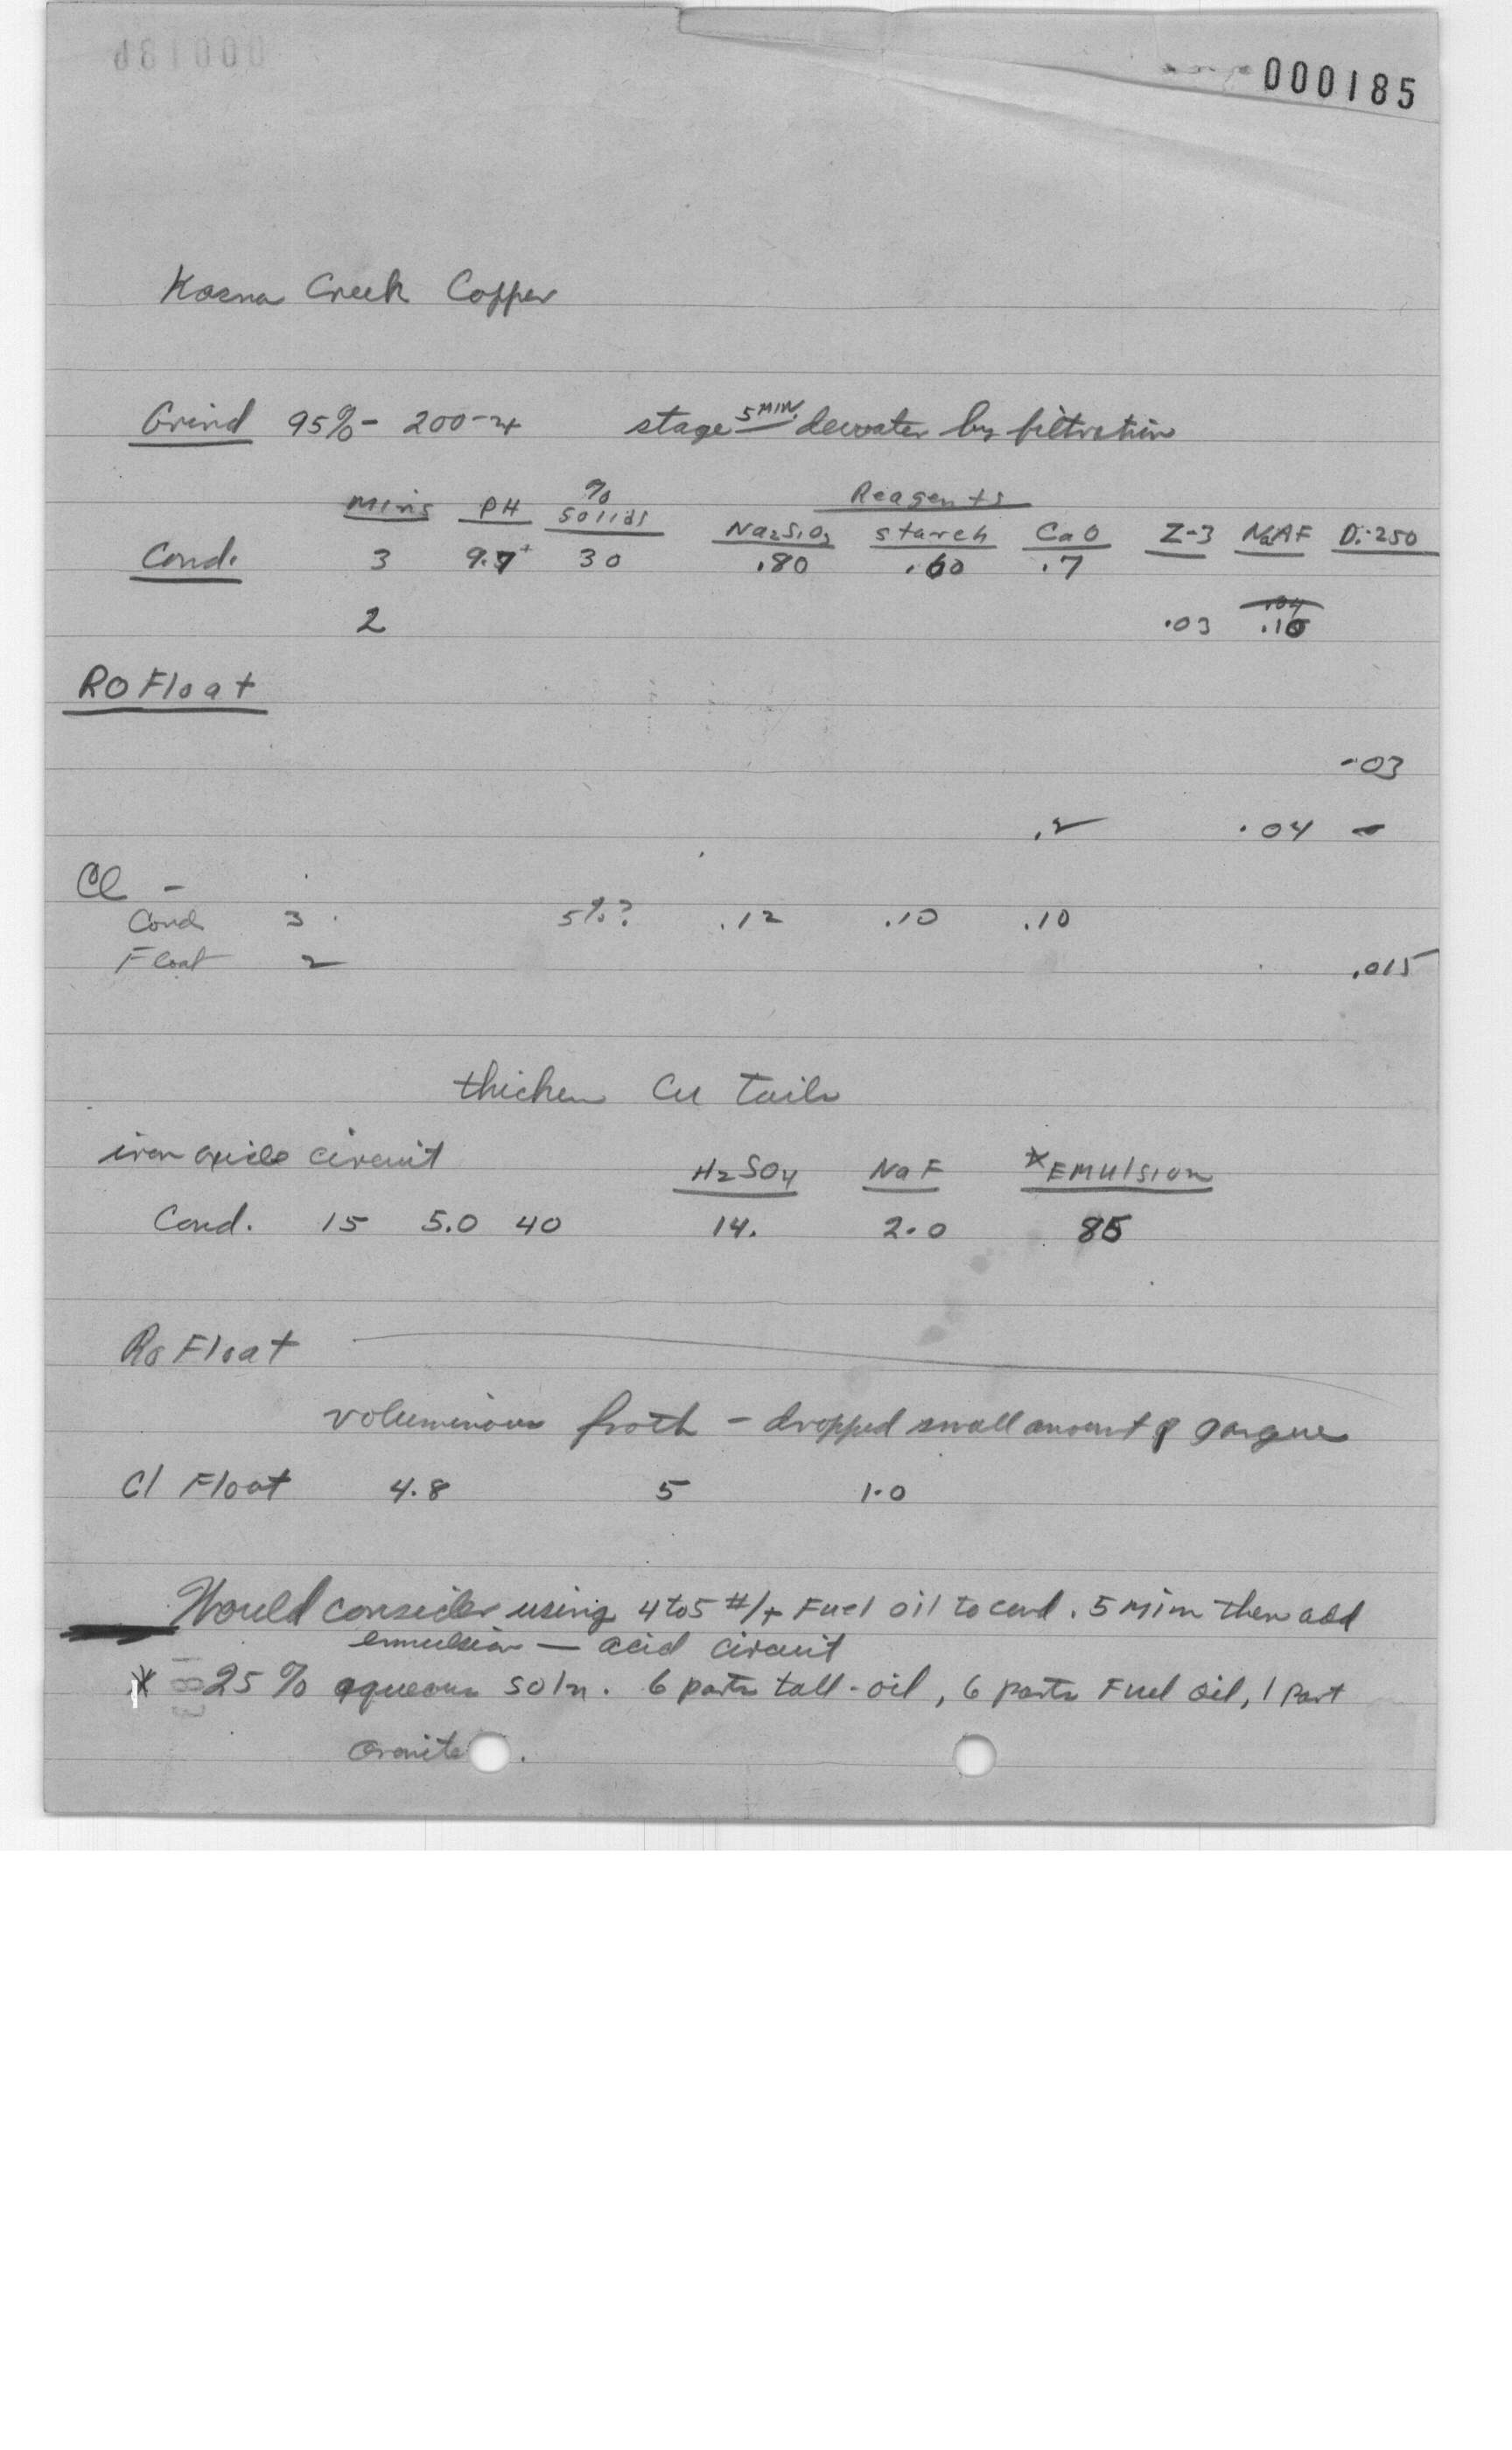 000185
Kasna Creek Copper
Grind 95% - 200-m stage 5 MIN. dewater by filtration
mins PH % solids Reagents
Na2SiO3 starch CaO Z-3 NaAF D.-250
Cond. 3 9.7+ 30 .80 .60 .7
2 .03 .04 .10
RO Float
.03
.2 .04 -
Cl -
Cond 3 5%? .12 .10 .10
Float 2 .015
thicken Cu tails
iron oxide circuit H2SO4 NaF *EMulsion
Cond. 15 5.0 40 14. 2.0 85
Ro Float
voluminous froth - dropped small amount of gangue
Cl Float 4.8 5 1.0
Would consider using 4 to 5 #/t Fuel oil to cond. 5 Min then add
emulsion — acid circuit
* 25% aqueous soln. 6 parts tall-oil, 6 parts Fuel oil, 1 Part
Oronite .